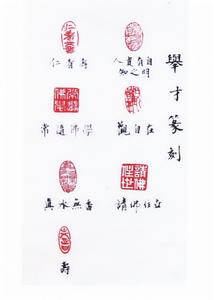 舉才篆刻
人貴有自
知之明
仁者壽
觀自在
常隨佛學
請佛住世
請佛住世
真水無香
壽